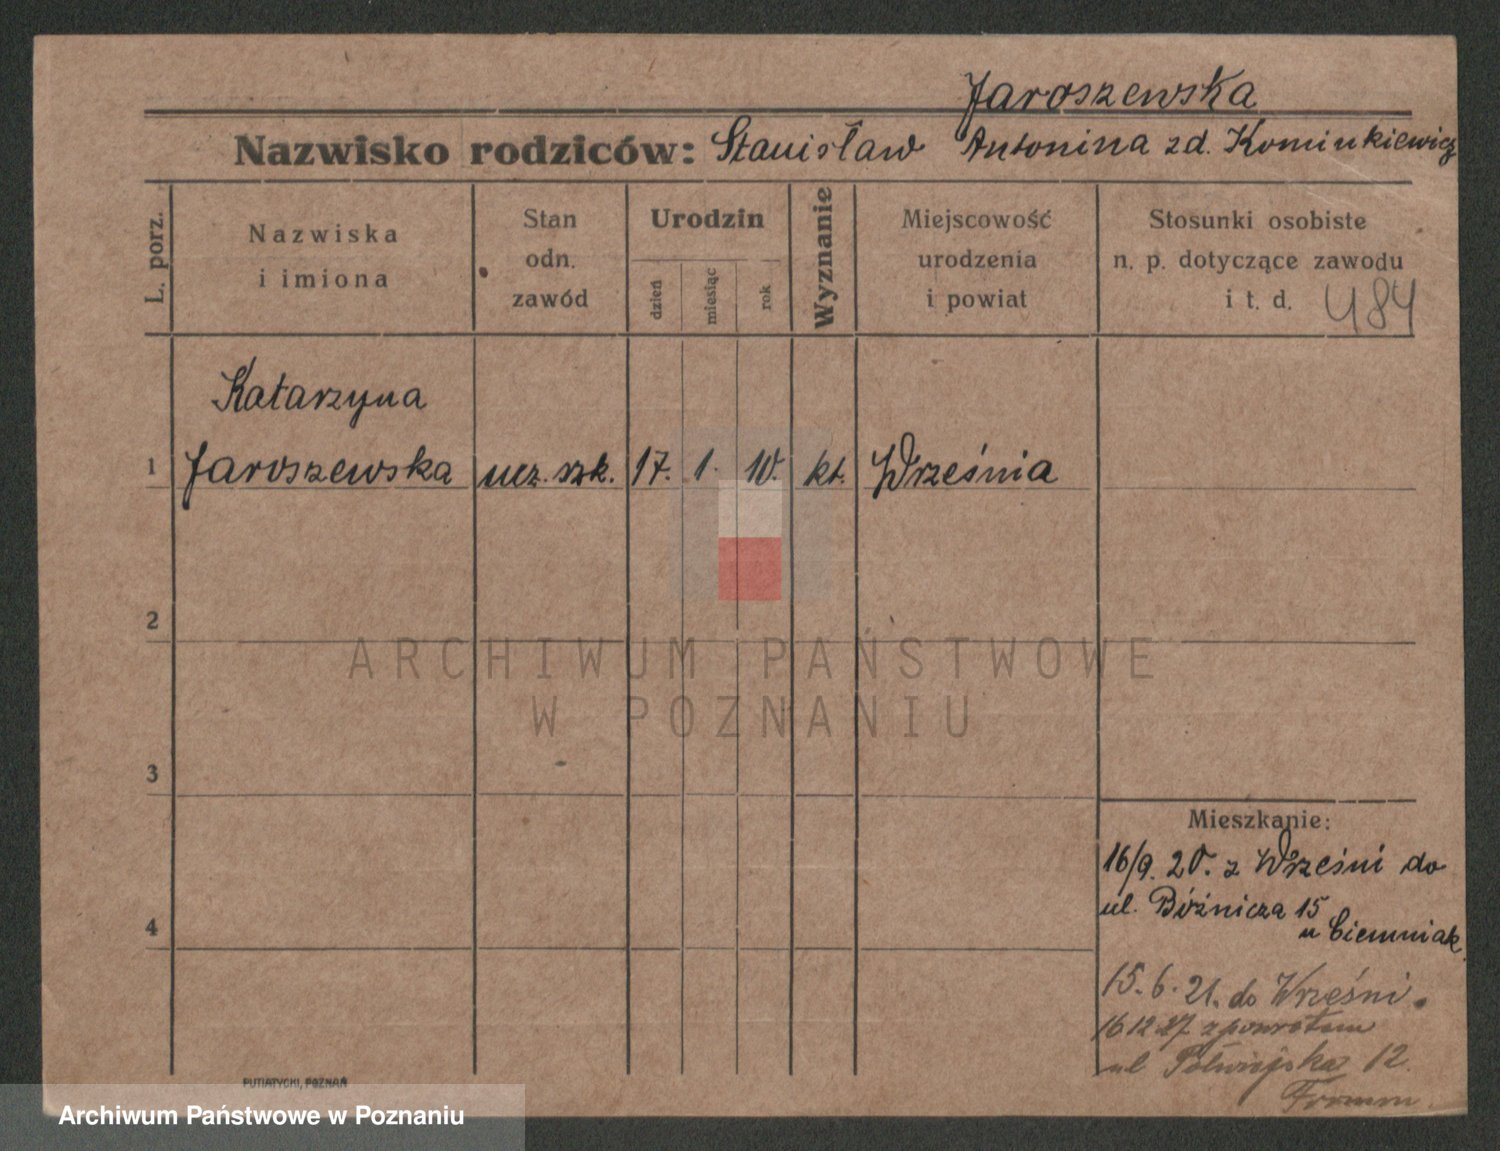 Jaroszewska
Nazwisko rodziców: Stanisław Antonina zd. Kominkiewicz
L. porz.
Nazwiska
i imiona
Stan
odn.
zawód
Urodzin
dzień
miesiąc
rok
Wyznanie
Miejscowość
urodzenia
i powiat
Stosunki osobiste
n. p. dotyczące zawodu
i t. d. 484
Katarzyna
1 Jaroszewska ucz. szk. 17. 1. 10. kt. Września
2
ARCHIWUM PAŃSTWOWE
W POZNANIU
3
Mieszkanie:
16/9. 20. z Wrześni do
ul. Bóżnicza 15
u Ciemniak
4
15. 6. 21. do Wrześni.
16 12 27 z powrotem
ul Półwiejska 12.
PUTIATYCKI, POZNAŃ
Archiwum Państwowe w Poznaniu